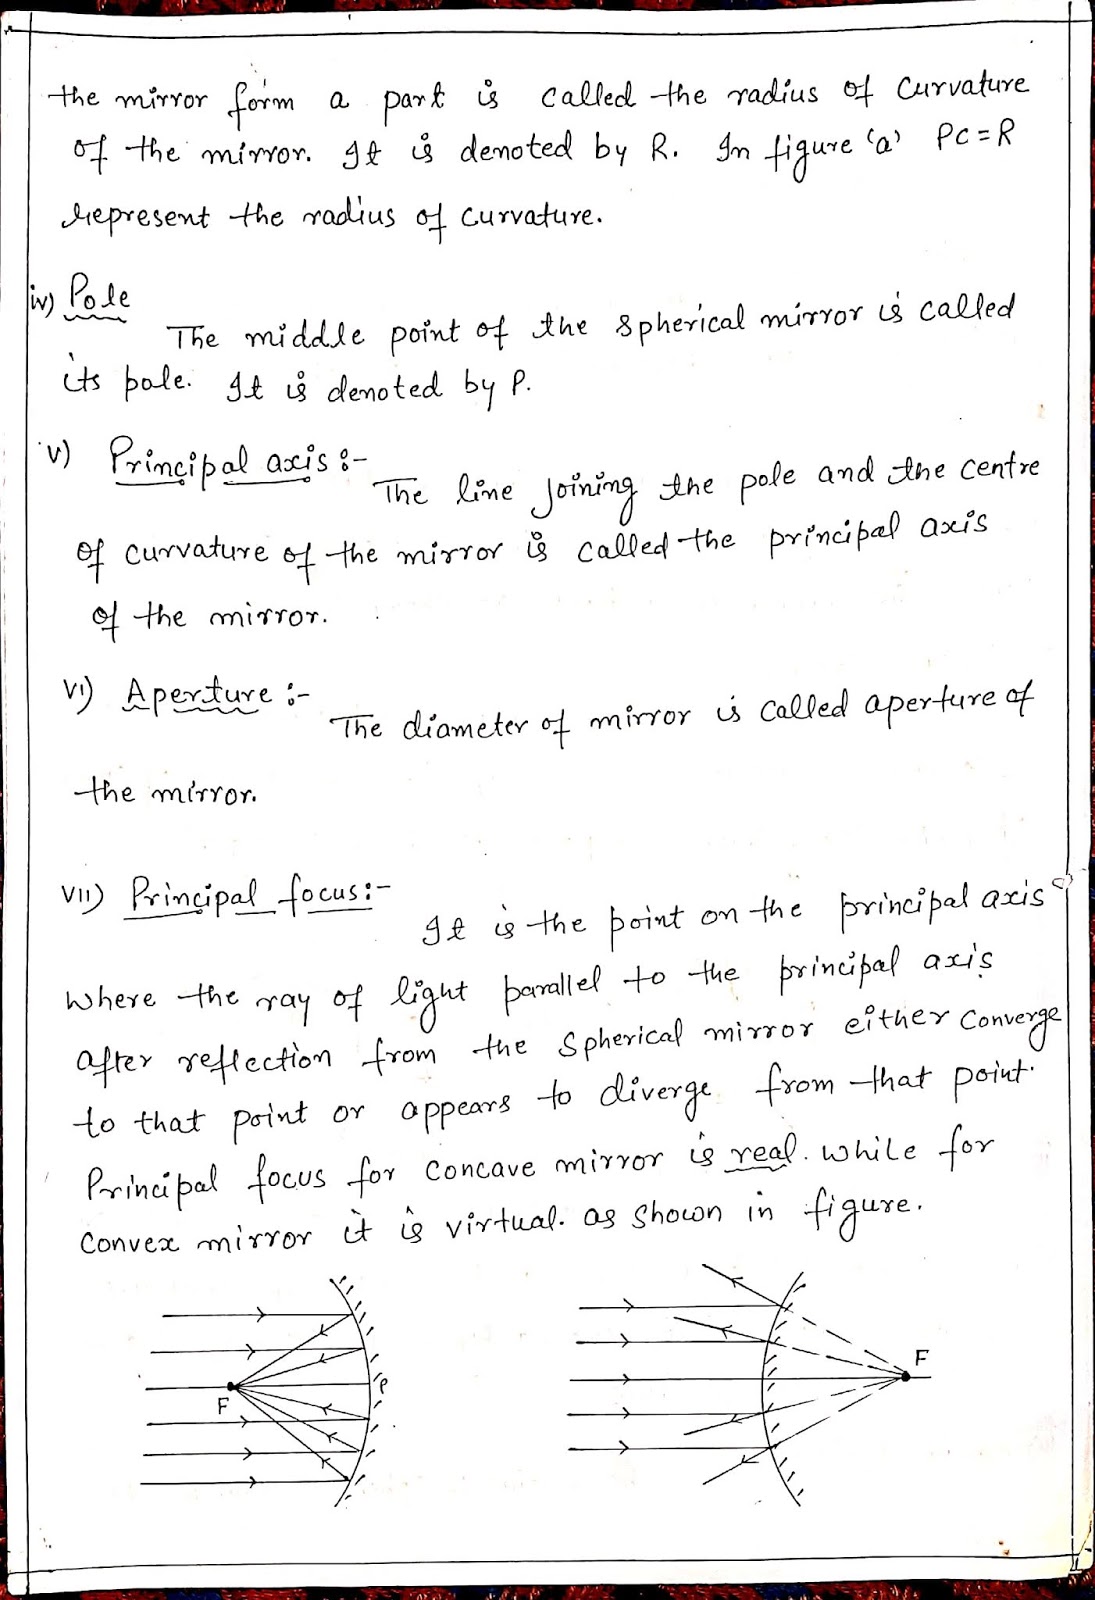 the mirror form a part is called the radius of curvature
of the mirror. It is denoted by R. In figure 'a' PC=R
represent the radius of curvature.
iv) Pole
The middle point of the spherical mirror is called
its pole. It is denoted by P.
v) Principal axis :-
The line joining the pole and the centre
of curvature of the mirror is called the principal axis
of the mirror.
vi) Aperture :-
The diameter of mirror is called aperture of
the mirror.
vii) Principal focus :-
It is the point on the principal axis
where the ray of light parallel to the principal axis
after reflection from the spherical mirror either converge
to that point or appears to diverge from that point.
Principal focus for concave mirror is real. while for
convex mirror it is virtual. as shown in figure.
F
P
F